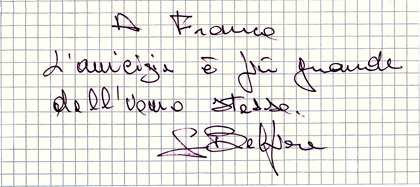 A Franco
L'amicizia è più grande
dell'uomo stesso.